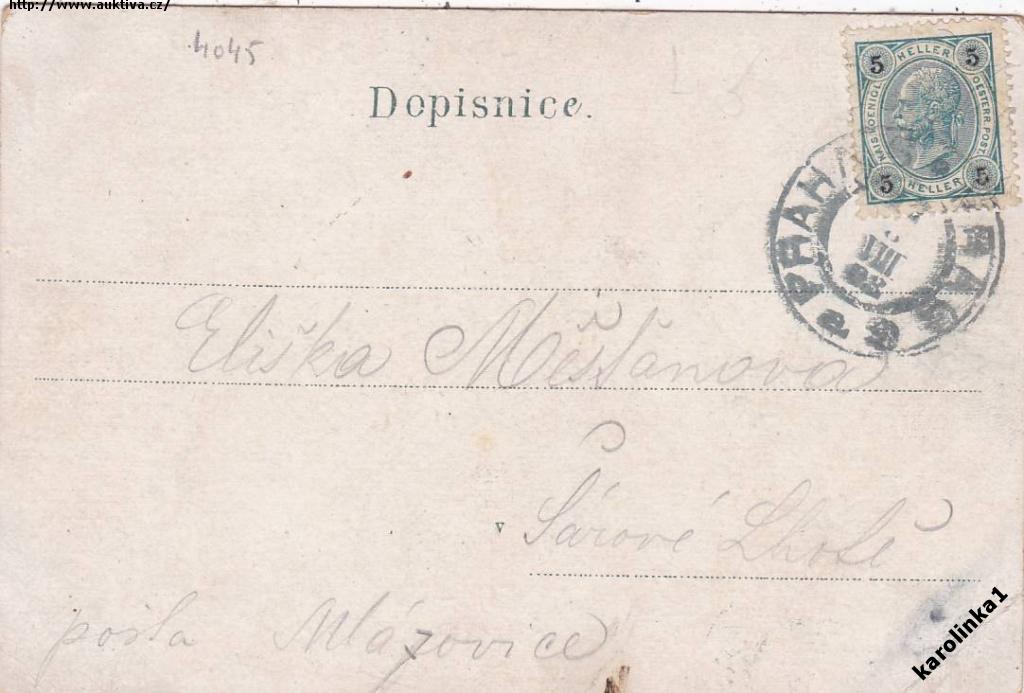 http://www.auktiva.cz/
4045
Dopisnice.
5 HELLER 5
KAIS. KOENIGL. OESTERR. POST
5 HELLER 5
PRAHA PRAG
VIII
Eliška Měšťanova
v Šárové Lhotě
pošta Mlázovice
karolinka1